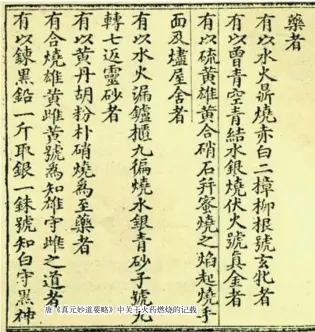 藥者
有以水火鼎燒赤白二樟柳根號玄牝者
有以曾青空青結水銀燒伏火號真金者
有以硫黃雄黃合硝石并蜜燒之焰起燒手
面及燼屋舍者
有以水火漏鑪櫃九徧燒水銀青砂子號九
轉七返靈砂者
有以黃丹胡粉朴硝燒爲至藥者
有合燒雄黃雌黃號爲知雄守雌之道者
有以鍊黑鉛一斤取銀一銖號知白守黑神
唐《真元妙道要略》中关于火药燃烧的记载